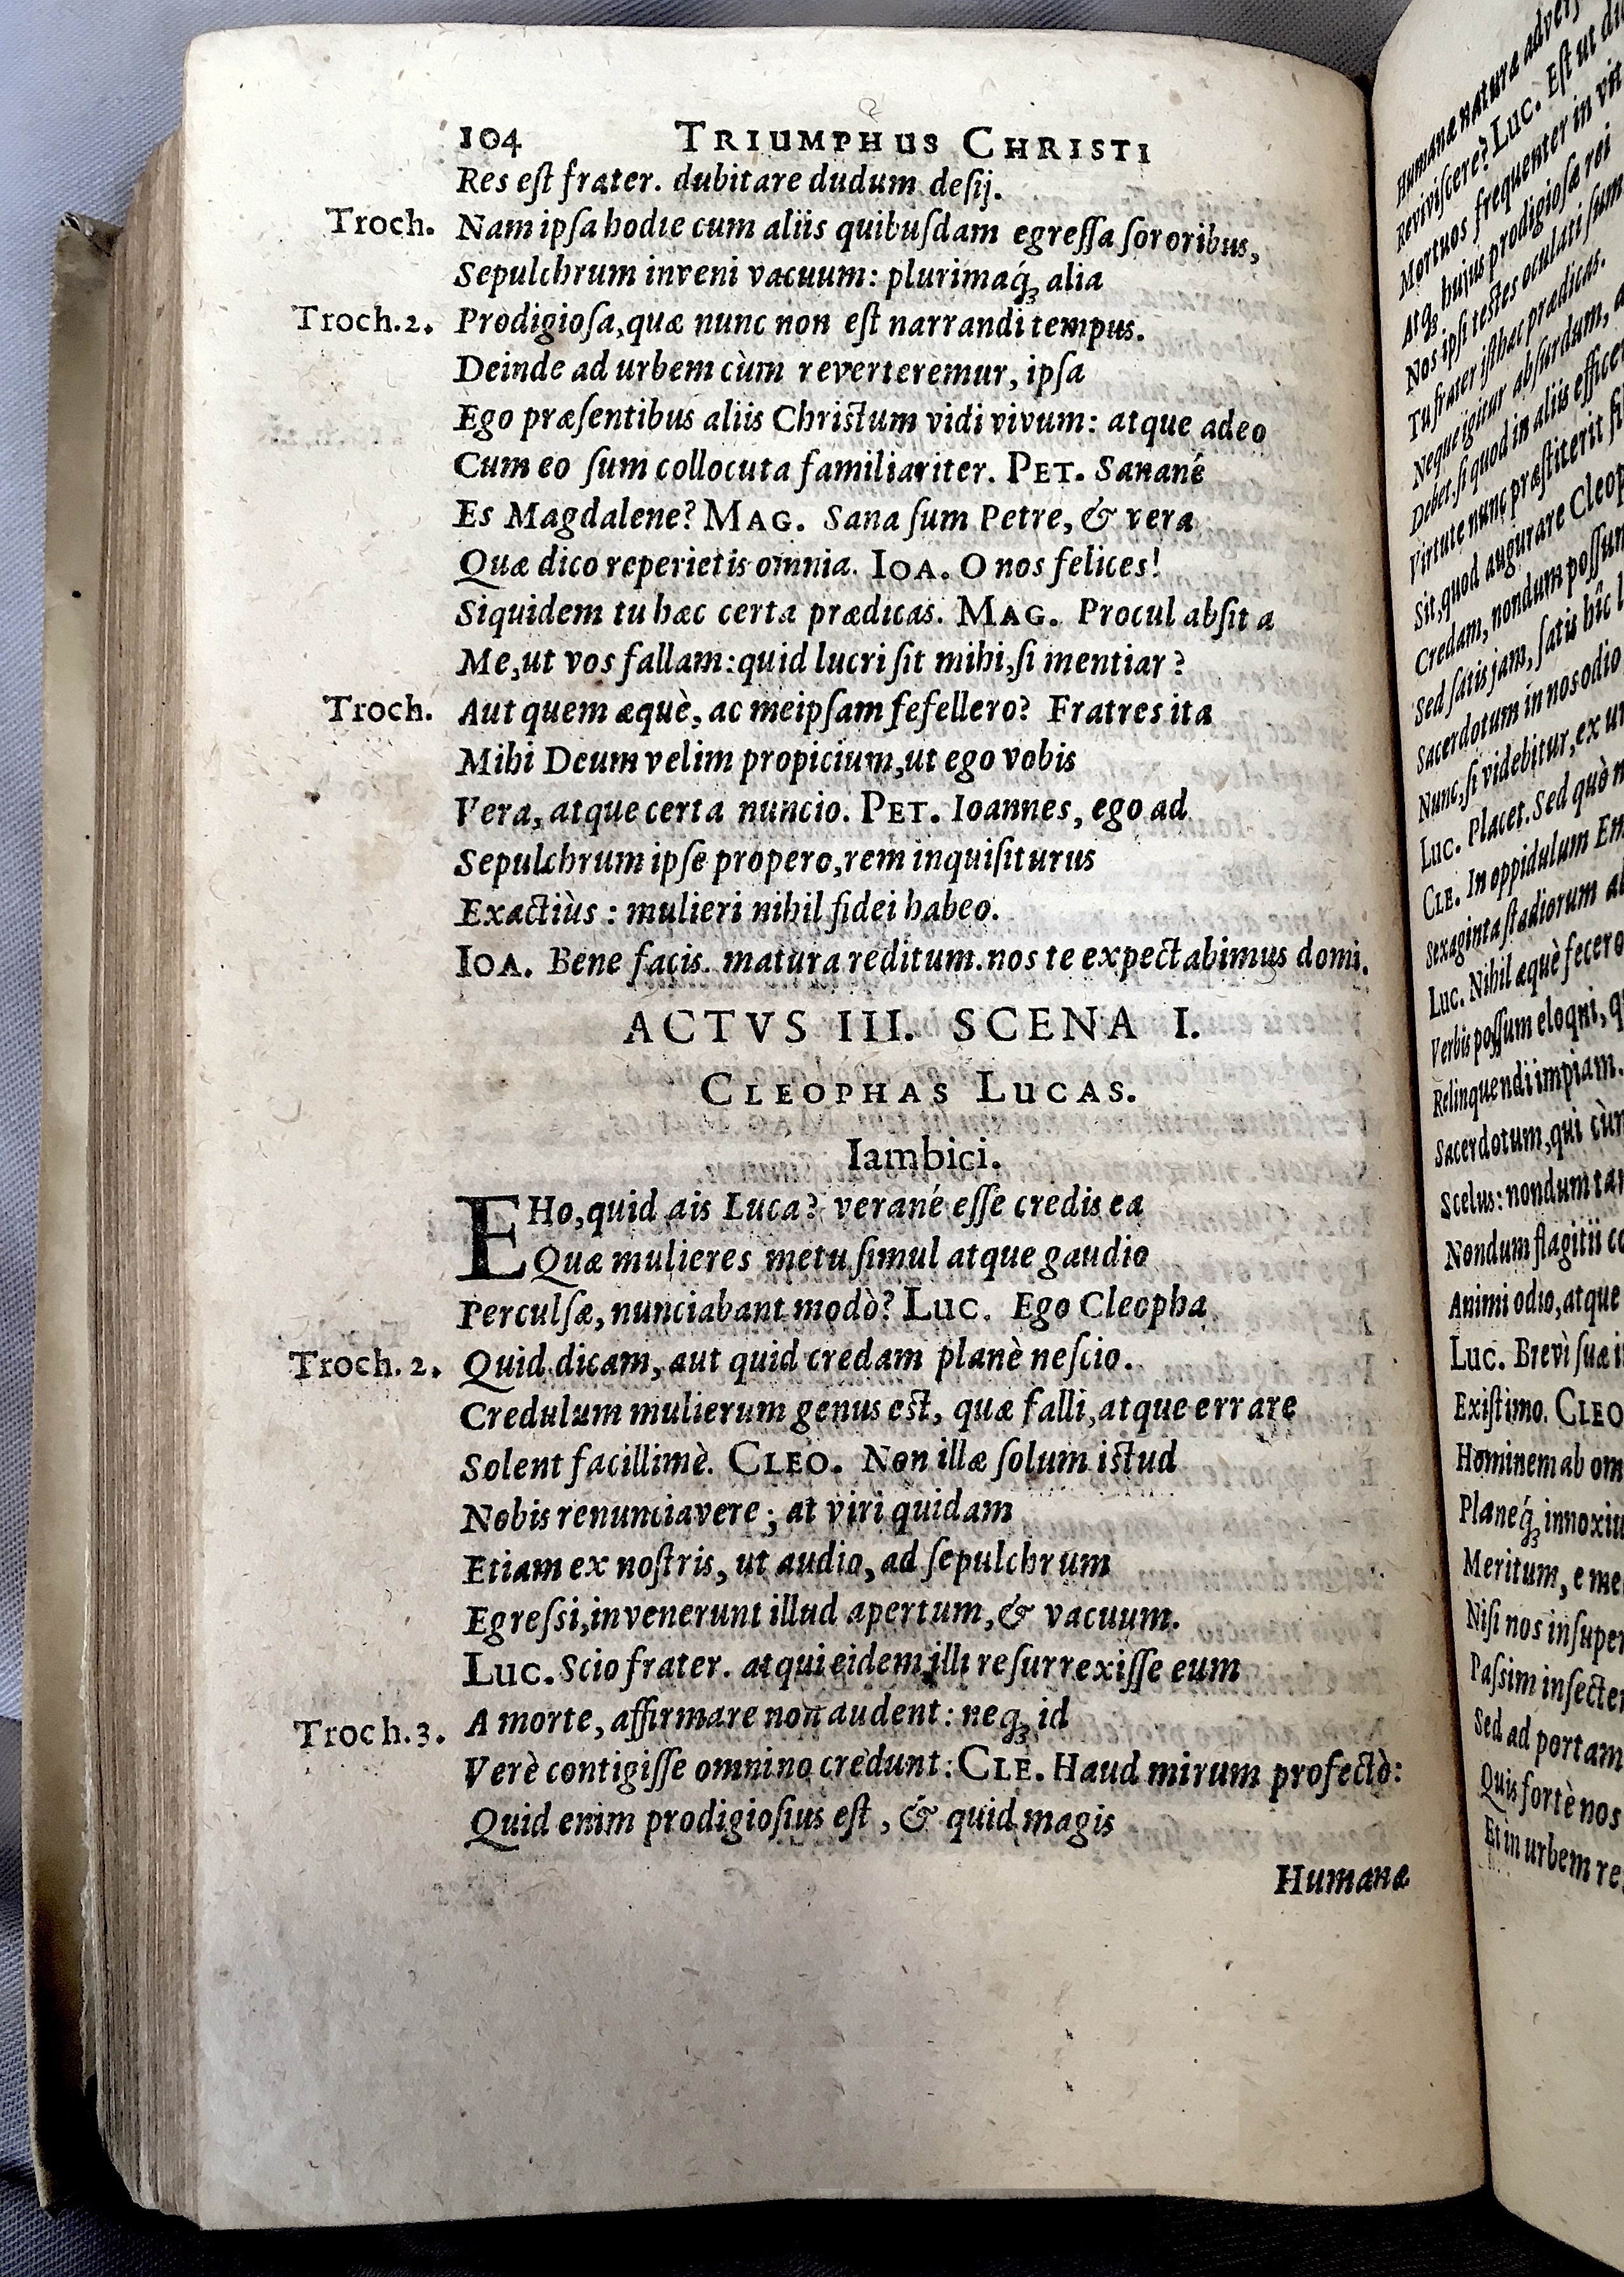 104 TRIUMPHUS CHRISTI
Res eſt frater. dubitare dudum deſij.
Troch. Nam ipſa hodie cum aliis quibuſdam egreſſa ſororibus,
Sepulchrum inveni vacuum: plurimaq́ꝫ alia
Troch.2. Prodigioſa, quæ nunc non eſt narrandi tempus.
Deinde ad urbem cùm reverteremur, ipſa
Ego præſentibus aliis Chriſtum vidi vivum: atque adeo
Cum eo ſum collocuta familiariter. PET. Sanané
Es Magdalene? MAG. Sana ſum Petre, & vera
Quæ dico reperietis omnia. IOA. O nos felices!
Siquidem tu hæc certa prædicas. MAG. Procul abſit a
Me, ut vos fallam: quid lucri ſit mihi, ſi mentiar?
Troch. Aut quem æquè, ac meipſam fefellero? Fratres ita
Mihi Deum velim propicium, ut ego vobis
Vera, atque certa nuncio. PET. Ioannes, ego ad
Sepulchrum ipſe propero, rem inquiſiturus
Exactiùs: mulieri nihil fidei habeo.
IOA. Bene facis. matura reditum. nos te expectabimus domi.
ACTVS III. SCENA I.
CLEOPHAS LUCAS.
Iambici.
EHo, quid ais Luca? verané eſſe credis ea
Quæ mulieres metu ſimul atque gaudio
Perculſæ, nunciabant modò? LUC. Ego Cleopha
Troch. 2. Quid dicam, aut quid credam planè neſcio.
Credulum mulierum genus eſt, quæ falli, atque errare
Solent facillimè. CLEO. Non illæ ſolum iſtud
Nobis renunciavere; at viri quidam
Etiam ex noſtris, ut audio, ad ſepulchrum
Egreſsi, invenerunt illud apertum, & vacuum.
LUC. Scio frater. atqui eidem illi reſurrexiſſe eum
Troch.3. A morte, affirmare non audent: neqꝫ id
Verè contigiſſe omnino credunt: CLE. Haud mirum profectò:
Quid enim prodigioſius eſt, & quid magis
Humanæ
Humanæ naturæ
Reviviſcere? LUC. Eſt ut
Mortuos frequenter in
Atqꝫ hujus prodigioſæ rei
Nos ipſi teſtes oculati
Tu frater iſthæc prædicas.
Neque igitur abſurdum,
Debet, ſi quod in aliis
Virtute nunc præſtiterit
Sit, quod augurare
Credam, nondum
Sed ſatis jam, ſatis hîc
Sacerdotum in nos odio
Nunc, ſi videbitur, ex
LUC. Placet. Sed quò
CLE. In oppidulum
Sexaginta ſtadiorum
LUC. Nihil æquè fecero
Verbis poſſum eloqni,
Relinquendi impiam.
Sacerdotum, qui
Scelus: nondum
Nondum flagitii
Animi odio, atque
LUC. Brevì ſuæ
Exiſtimo. CLEO
Hominem ab
Planeq́ꝫ
Meritum, e
Niſi nos
Paſsim
Sed ad portam
Quis fortè nos
Et in urbem